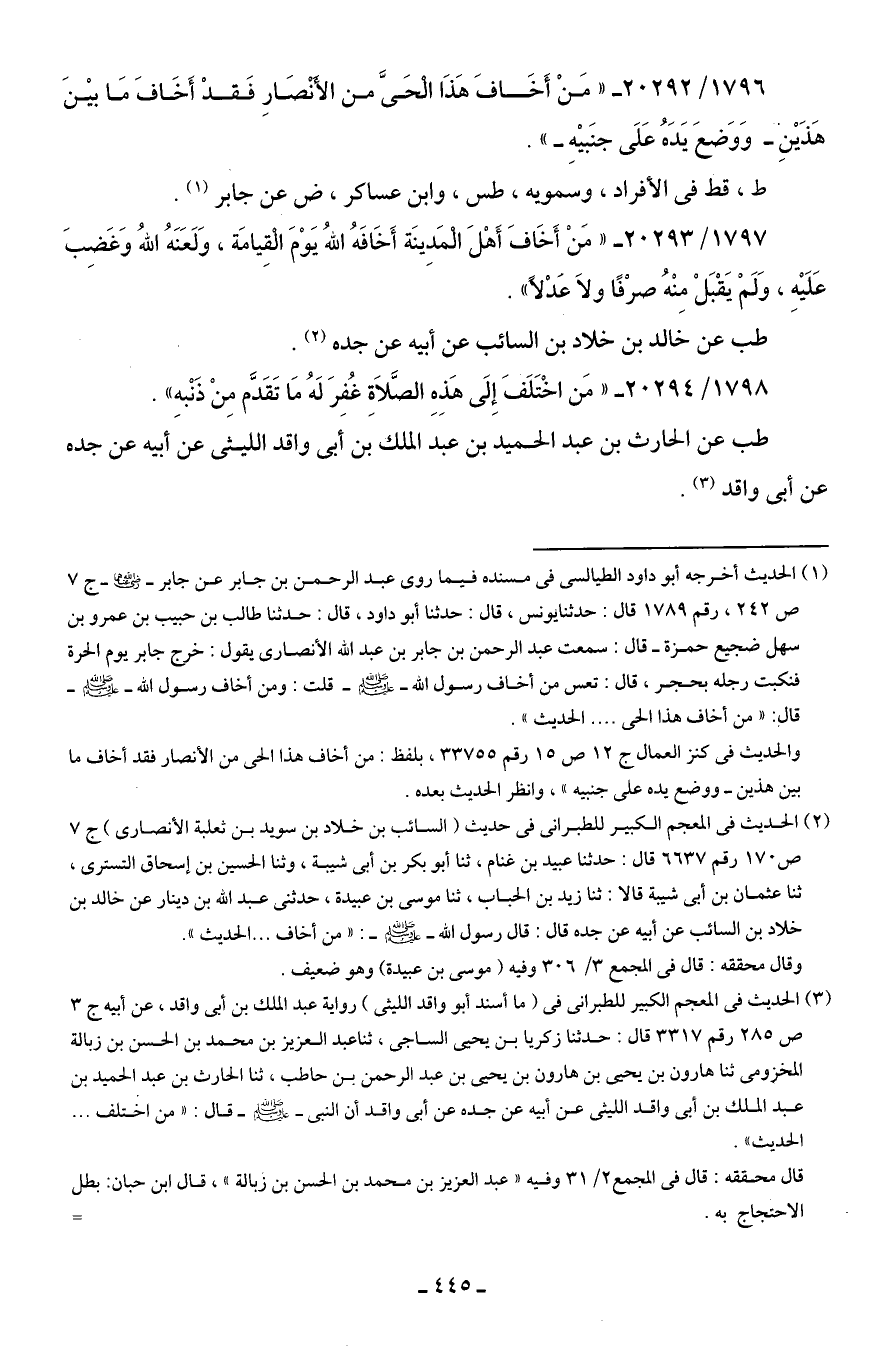 ١٧٩٦/ ٢٠٢٩٢ـ « مَـنْ أَخَـــافَ هَذَا الْحَىَّ مـن الأَنْصَـارِ فَـقــدْ أَخَـافَ مَـا بَيْـنَ
هَذَيْنِ ـ وَوَضعَ يَدَهُ عَلَى جنبَيْهِ ـ» .
ط ، قط فى الأفراد ، وسمويه ، طس ، وابن عساكر ، ض عن جابر (١) .
١٧٩٧/ ٢٠٢٩٣ـ « مَنْ أَخَافَ أَهْلَ الْمَدِينَة أَخَافَهُ اللهُ يَوْمَ الْقِيامَة ، وَلَعَنَهُ اللهُ وَغَضِبَ
عَلَيْهِ ، وَلَمْ يَقْبَلْ مِنْهُ صرْفًا ولاَ عَدْلاً» .
طب عن خالد بن خلاد بن السائب عن أبيه عن جده (٢) .
١٧٩٨/ ٢٠٢٩٤ـ « مَن اخْتَلَفَ إِلَى هَذِهِ الصَّلاَةِ غُفِرَ لَهُ مَا تَقَدَّم مِنْ ذَنْبِه» .
طب عن الحارث بن عبد الحـميد بن عبد الملك بن أبى واقد الليـثى عن أبيه عن جده
عن أبى واقد (٣) .
(١) الحديث أخـرجه أبو داود الطيالسى فى مسنده فيـما روى عبـد الرحـمـن بن جـابر عـن جابر ـ رضي الله عنه ـ ج ٧
ص ٢٤٢ ، رقم ١٧٨٩ قال : حدثنايونس ، قال : حدثنا أبو داود ، قال : حـدثنا طالب بن حبيب بن عمرو بن
سهل ضجيع حمـزة ـ قال : سمعت عبد الرحمن بن جابر بن عبد الله الأنصـارى يقول : خرج جابر يوم الحرة
فنكبت رجله بحـجـر ، قال : تعس من أخـاف رسـول الله ـ ﷺ ـ قلت : ومن أخاف رسـول الله ـ ﷺ ـ
قال: « من أخاف هذا الحى .... الحديث » .
والحديث فى كنز العمال ج ١٢ ص ١٥ رقم ٣٣٧٥٥ ، بلفظ : من أخاف هذا الحى من الأنصار فقد أخاف ما
بين هذين ـ ووضع يده على جنبيه » ، وانظر الحديث بعده .
(٢) الحـديث فى المعجم الـكبيـر للطبـرانى فى حديث ( السائب بن خـلاد بن سويد بـن ثعلبة الأنصـارى ) ج ٧
ص١٧٠ رقم ٦٦٣٧ قال : حدثنا عبيد بن غنام ، ثنا أبو بكر بن أبى شيبـة ، وثنا الحسين بن إسحاق التسترى ،
ثنا عثمـان بن أبى شيبة قالا : ثنا زيد بن الحباب ، ثنا موسى بن عبيدة ، حدثنى عبـد الله بن دينار عن خالد بن
خلاد بن السائب عن أبيه عن جده قال : قال رسول الله ـ ﷺ ـ : « من أخاف ...الحديث ».
وقال محققه : قال فى المجمع ٣/ ٣٠٦ وفيه ( موسى بن عبيدة) وهو ضعيف .
(٣) الحديث فى المعجم الكبير للطبرانى فى ( ما أسند أبو واقد الليثى ) رواية عبد الملك بن أبى واقد ، عن أبيه ج ٣
ص ٢٨٥ رقم ٣٣١٧ قال : حـدثنا زكريا بـن يحيى السـاجى ، ثناعبد الـعزيز بن محـمد بن الحـسن بن زبالة
المخزومى ثنا هارون بن يحيى بن هارون بن يحيى بن عبد الرحمن بـن حاطب ، ثنا الحارث بن عبد الحميد بن
عبـد المـلك بن أبى واقـد الليثى عـن أبيه عن جده عن أبى واقـد أن النبى ـ ﷺ ـ قـال : « من اخـتلف ...
الحديث» .
قال محـققه : قال فى المجمع٢/ ٣١ وفـيه « عبد العزيز بن محمد بن الحسن بن زبالة » ، قـال ابن حبان: بطل
الاحتجاج به . =
ـ ٤٤٥ ـ